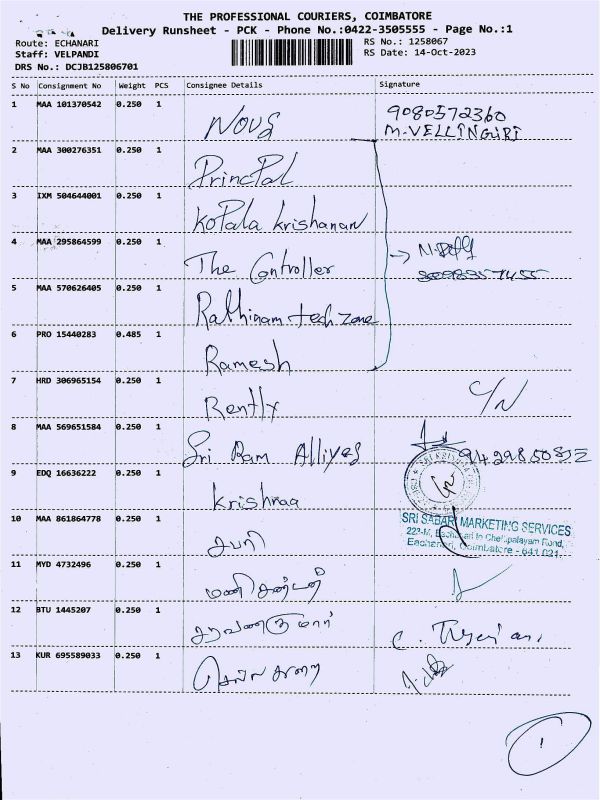 THE PROFESSIONAL COURIERS, COIMBATORE
Delivery Runsheet - PCK - Phone No.:0422-3505555 - Page No.:1
Route: ECHANARI
RS No.: 1258067
Staff: VELPANDI
RS Date: 14-Oct-2023
DRS No.: DCJB125806701
S No Consignment No Weight PCS Consignee Details Signature
1 MAA 101370542 0.250 1 NOVS 9080572360
M.VELLINGIRI
2 MAA 300276351 0.250 1 PrincPal
3 IXM 504644001 0.250 1 KoPala krishanan
4 MAA 295864599 0.250 1 The Controller
5 MAA 570626405 0.250 1 Rathinam tech zone
6 PRO 15440283 0.485 1 Ramesh
7 HRD 306965154 0.250 1 Rently C/N
8 MAA 569651584 0.250 1 Sri Ram Alliyes
9 EDQ 16636222 0.250 1 krishnaa
SRI SABARI MARKETING SERVICES
10 MAA 861864778 0.250 1 சபரி
223-M, Eachanari to Chettipalayam Road,
Eachanari, Coimbatore - 641 021.
11 MYD 4732496 0.250 1 மணிகண்டன்
12 BTU 1445207 0.250 1 சரவணகுமார்
13 KUR 695589033 0.250 1 செல்லதுரை
1